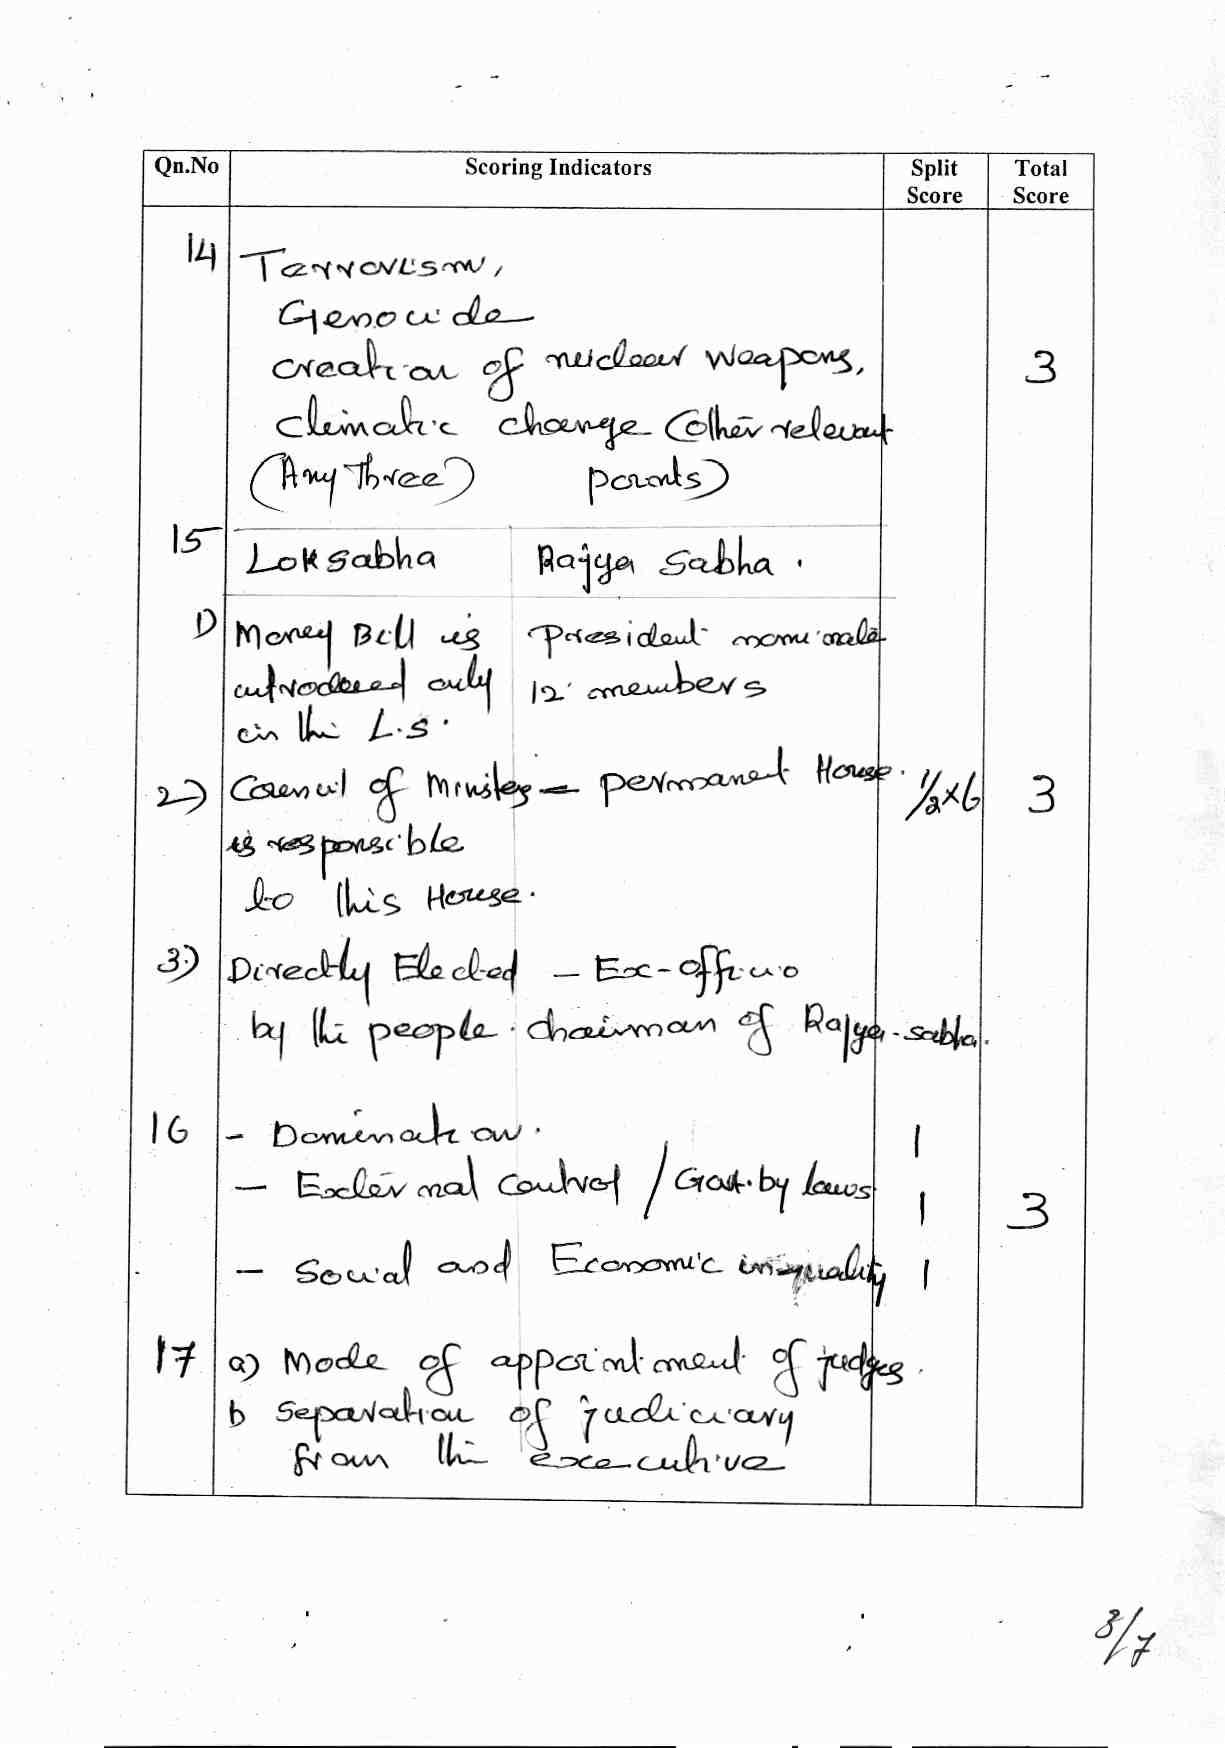 Qn.No Scoring Indicators Split Score Total Score
14 Terrorism,
Genocide
creation of nuclear weapons, 3
climatic change (other relevant
(Any Three) points)
15 Lok sabha Rajya Sabha.
1) Money Bill is President nominate
introduced only 12 members
in the L.S.
2) Council of Ministers – permanent House. 1/2x6 3
is responsible
to this House.
3) Directly Elected – Ex-officio
by the people. chairman of Rajya-sabha.
16 – Domination. 1
– External control / Govt. by laws 1 3
– Social and Economic inequality 1
17 a) Mode of appointment of judges.
b Separation of judiciary
from the executive
3/7